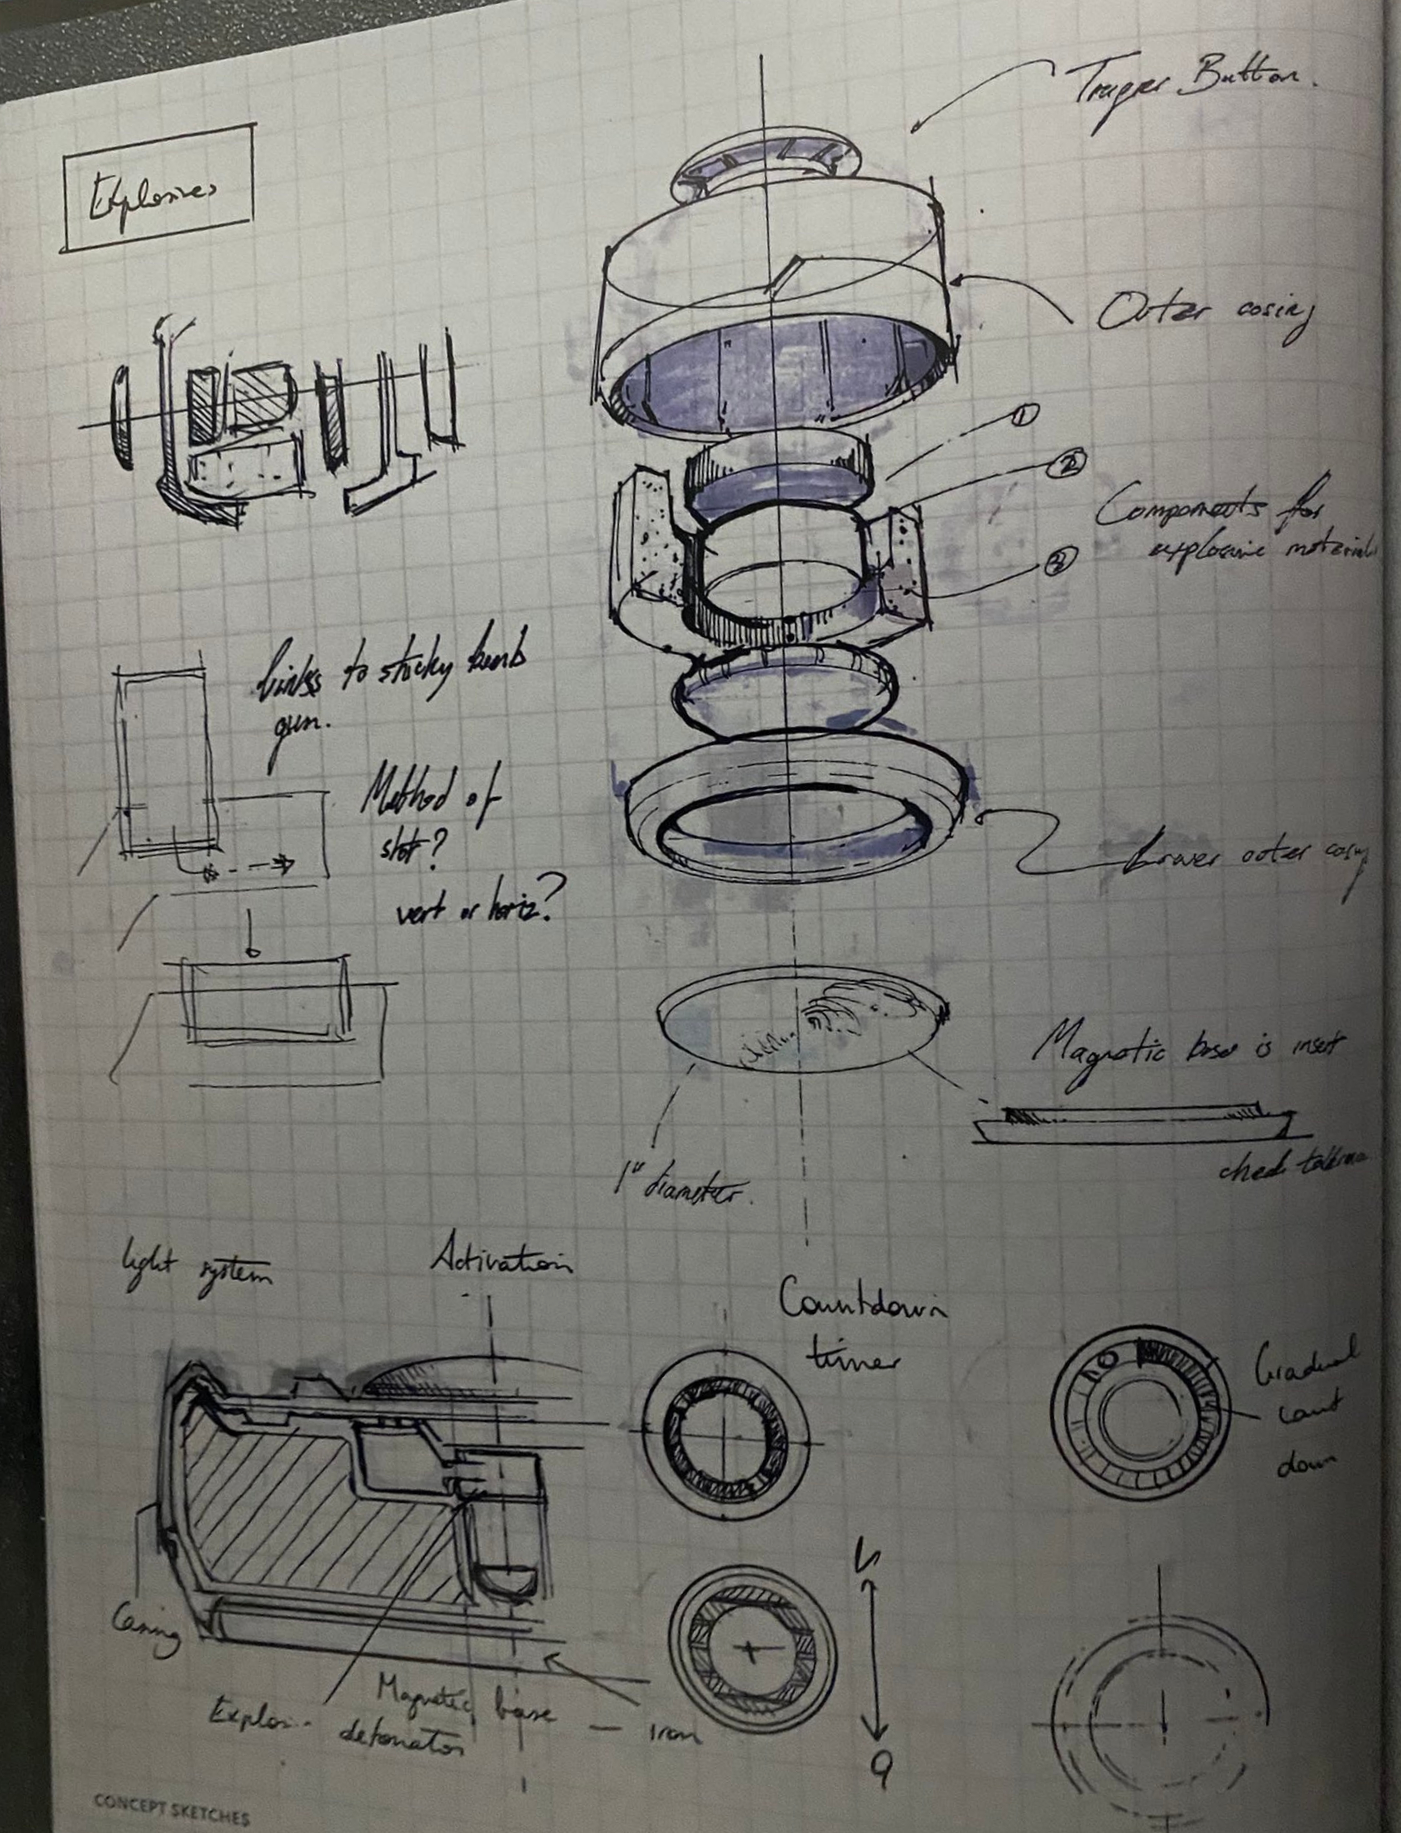 Explosives
Trigger Button.
Outer casing
①
②
③
Components for
explosive material
links to sticky bomb
gun.
Method of
shot?
vert or horiz?
Lower outer casing
Magnetic base is insert
1" diameter.
light system
Activation
Countdown
timer
Gradual
count
down
Casing
Magnetic base — iron
detonator
CONCEPT SKETCHES